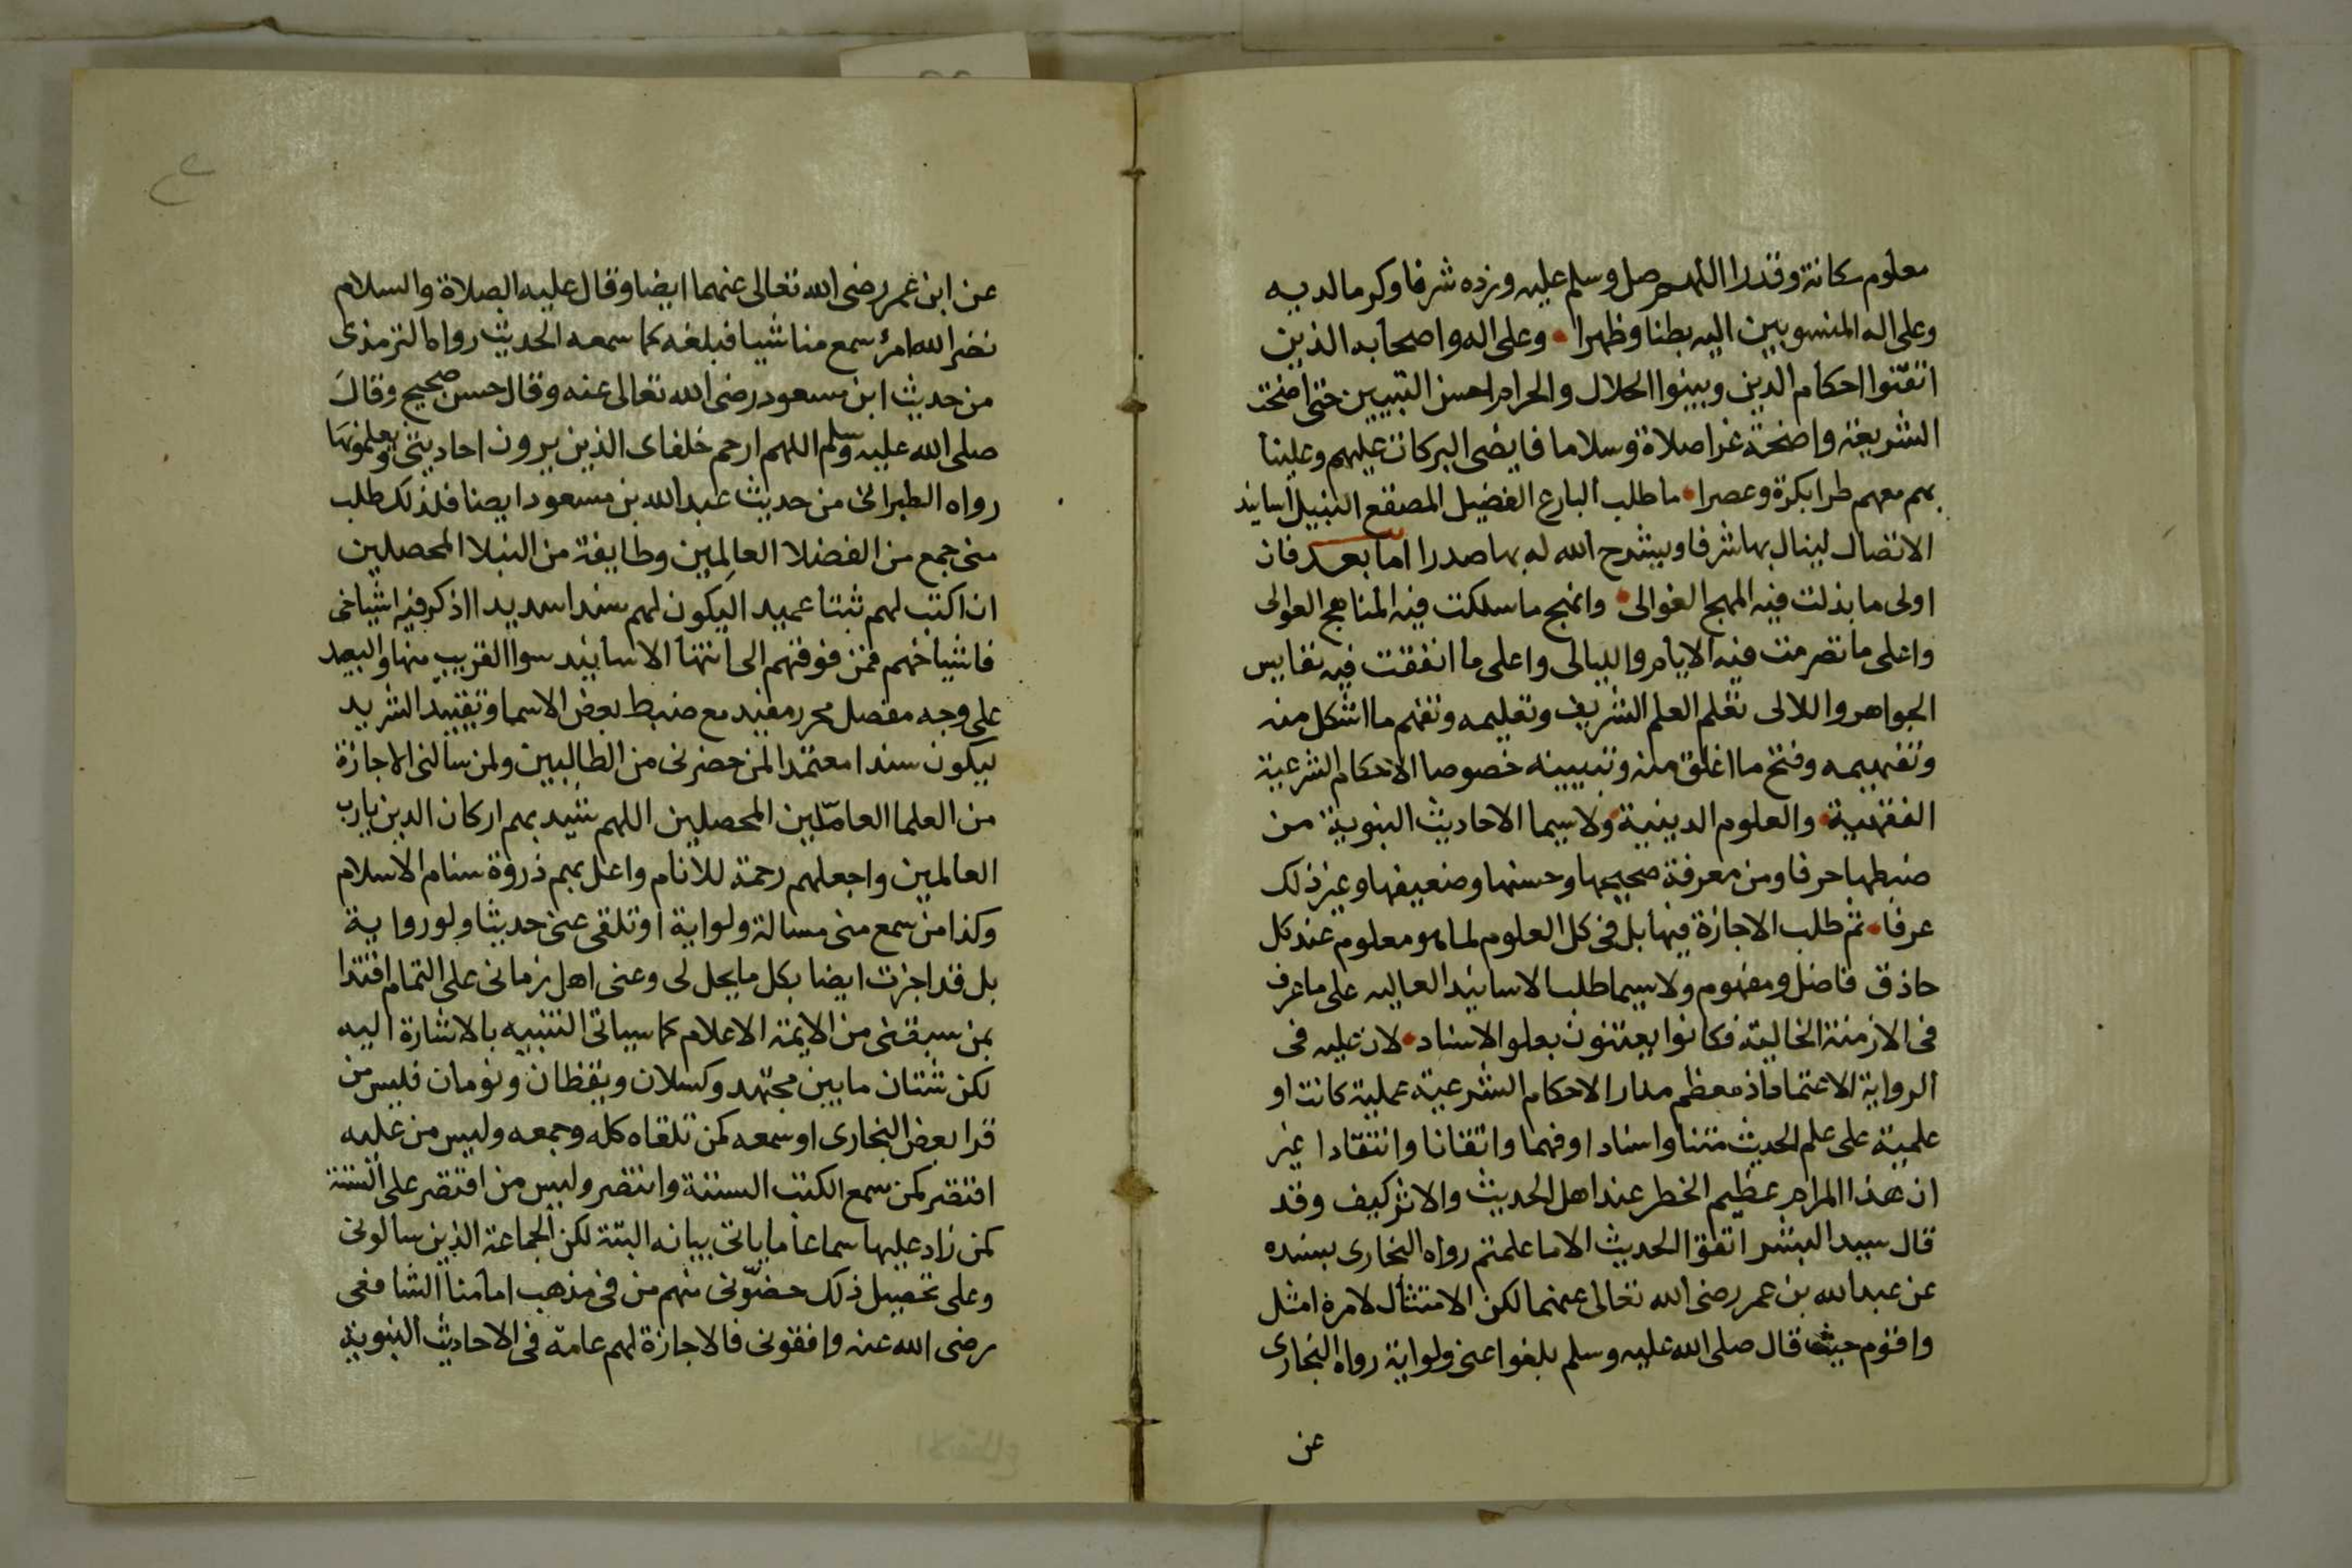 معلوم مكانة وقدرا اللهم صل وسلم عليه وزده شرفا وكرما لديه
وعلى اله المنسوبين اليه بطنا وظهرا وعلى اله واصحابه الذين
اتقنوا احكام الدين وبينوا الحلال والحرام احسن التبيين حتى اضحت
الشريعة واضحة غرا صلاة وسلاما فايضى البركات عليهم وعلينا
بهم معهم طرا بكرة وعصرا ما طلب البارع الفضيل المصقع النبيل اسانيد
الاتصال لينال بها شرفا ويشرح الله له بها صدرا اما بعد فان
اولى ما بذلت فيه المهج الغوالى وانهج ما سلكت فيه المناهج العوالى
واعلى ما تصرمت فيه الايام والليالى واعلى ما انفقت فيه نفايس
الجواهر واللالى تعلم العلم الشريف وتعليمه وتفهم ما اشكل منه
وتفهيمه وفتح ما اغلق منه وتبيينه خصوصا الاحكام الشرعية
الفقهية والعلوم الدينية ولاسيما الاحاديث النبوية من
ضبطها حرفا ومن معرفة صحيحها وحسنها وضعيفها وغير ذلك
عرفا ثم طلب الاجازة فيها بل فى كل العلوم لما هو معلوم عند كل
حاذق فاضل ومفهوم ولاسيما طلب الاسانيد العاليه على ما عرف
فى الازمنة الخالية فكانوا يعتنون بعلو الاسناد لان عليه فى
الرواية الاعتماد اذ معظم مدار الاحكام الشرعية عملية كانت او
علمية على علم الحديث متنا واسنادا وفهما واتقانا وانتقادا غير
ان هذا المرام عظيم الخطر عند اهل الحديث والاثر كيف وقد
قال سيد البشر اتقوا الحديث الا ما علمتم رواه البخارى بسنده
عن عبد الله بن عمر رضى الله تعالى عنهما لكن الامتثال لامره امثل
واقوم حيث قال صلى الله عليه وسلم بلغوا عنى ولو اية رواه البخارى
عن
عن ابن عمر رضى الله تعالى عنهما ايضا وقال عليه الصلاة والسلام
نضر الله امرئ سمع منا شيا فبلغه كما سمعه الحديث رواه الترمذى
من حديث ابن مسعود رضى الله تعالى عنه وقال حسن صحيح وقال
صلى الله عليه وسلم اللهم ارحم خلفاى الذين يرون احاديثى ويعلمونها
رواه الطبرانى من حديث عبد الله بن مسعود ايضا فلذلك طلب
منى جمع من الفضلا العالمين وطايفة من النبلا المحصلين
ان اكتب لهم ثبتا عميدا ليكون لهم سندا سديدا اذكر فيه اشياخى
فاشياخهم فمن فوقهم الى انتها الاسانيد سوا القريب منها والبعيد
على وجه مفصل محرر مفيد مع ضبط بعض الاسما وتقييد الشريد
ليكون سندا معتمدا لمن حضرنى من الطالبين ولمن سالنى الاجازة
من العلما العاملين المحصلين اللهم شيد بهم اركان الدين يارب
العالمين واجعلهم رحمة للانام واعل بهم ذروة سنام الاسلام
وكذا من سمع منى مسالة ولو اية او تلقى عنى حديثا ولو رواية
بل قد اجزت ايضا بكل ما يحل لى وعنى اهل زمانى على التمام اقتدا
بمن سبقنى من الايمة الاعلام كما سياتى التنبيه بالاشارة اليه
لكن شتان ما بين مجتهد وكسلان ويقظان ونومان فليس من
قرا بعض البخارى او سمعه كمن تلقاه كله وجمعه وليس من عليه
اقتصر كمن سمع الكتب الستة وانتصر وليس من اقتصر على الستة
كمن زاد عليها سماعا ما ياتى بيانه البتة لكن الجماعة الذين سالونى
وعلى تحصيل ذلك حضونى منهم من فى مذهب امامنا الشافعى
رضى الله عنه وافقونى فالاجازة لهم عامة فى الاحاديث النبوية